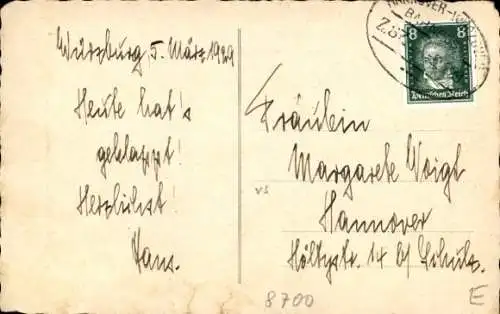 Würzburg, 5. März 1929
Heute hat's
geklappt!
Herzlichst!
Hans.
8 8
Deutsches Reich
Fräulein
Margarete Voigt
Hannover
Höltystr. 14 b/ Schulz.
vs
8700
E